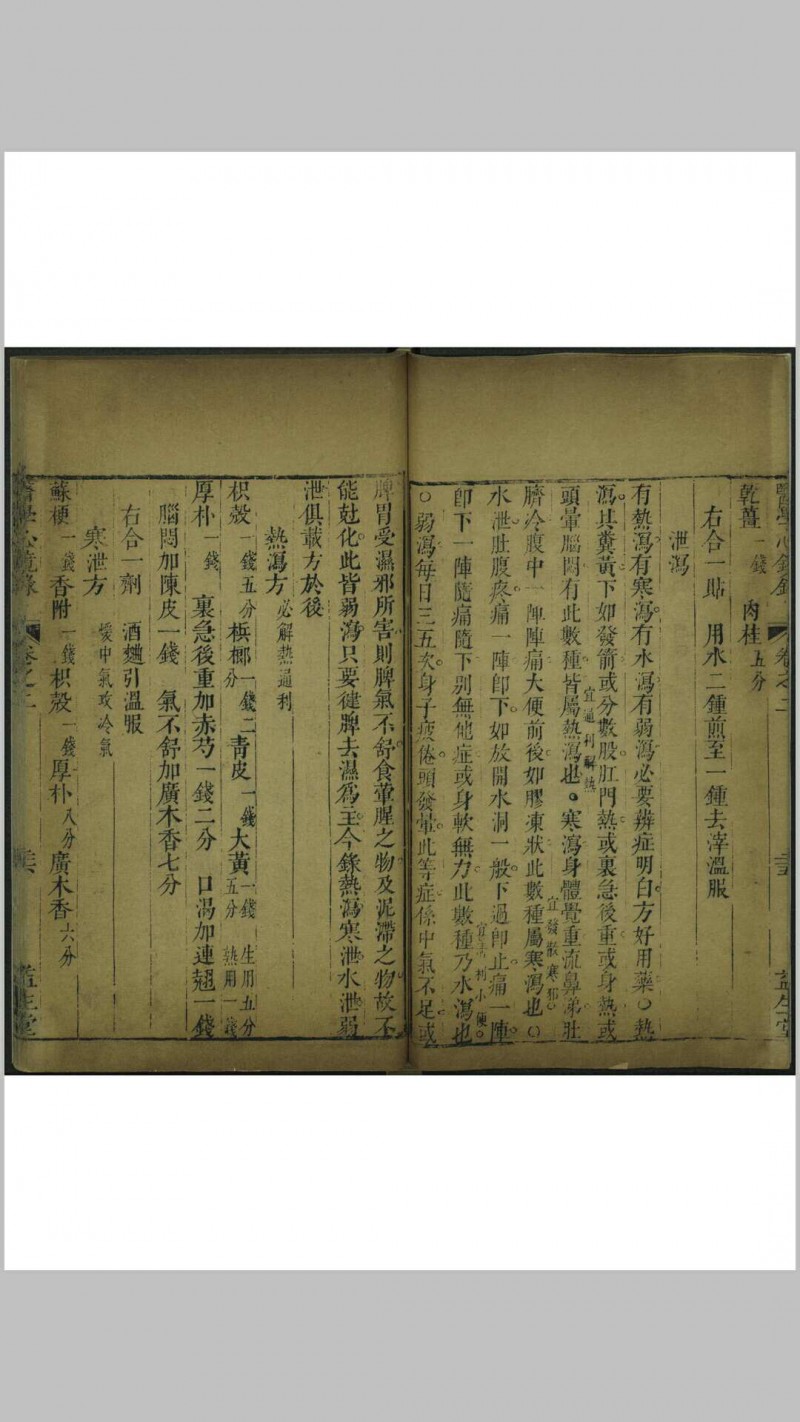 卷之二
乾薑一錢 肉桂五分
右合一貼 用水二鍾煎至一鍾去滓溫服
泄瀉
有熱瀉有寒瀉有水瀉有弱瀉必要辨症明白方好用藥○熱
瀉其糞黃下如發箭或分數股肛門熱或裏急後重或身熱或
頭暈腦悶有此數種皆屬熱瀉也宜通利解熱。寒瀉身體覺重流鼻涕肚
臍冷腹中一陣陣痛大便前後如膠凍狀此數種屬寒瀉也宜發散寒邪○
水泄肚腹疼痛一陣即下如放開水洞一般下過即止痛一陣
即下一陣隨痛隨下別無他症或身軟無力此數種乃水瀉也利小便
○弱瀉每日三五次身子疲倦頭發暈此等症係中氣不足或
脾胃受濕邪所害則脾氣不舒食葷腥之物及泥滯之物故不
能尅化此皆弱瀉只要健脾去濕為主今錄熱瀉寒泄水泄弱
泄俱載方於後
熱瀉方 必解熱通利
枳殼一錢五分 檳榔一錢二分 青皮一錢 大黃一錢五分 生用五分熟用一錢
厚朴一錢 裏急後重加赤芍一錢二分 口渴加連翹一錢
腦悶加陳皮一錢 氣不舒加廣木香七分
右合一劑 酒麯引溫服
寒泄方 煖中氣攻冷氣
蘇梗一錢 香附一錢 枳殼一錢 厚朴八分 廣木香六分
醫學心鏡錄 卷之二